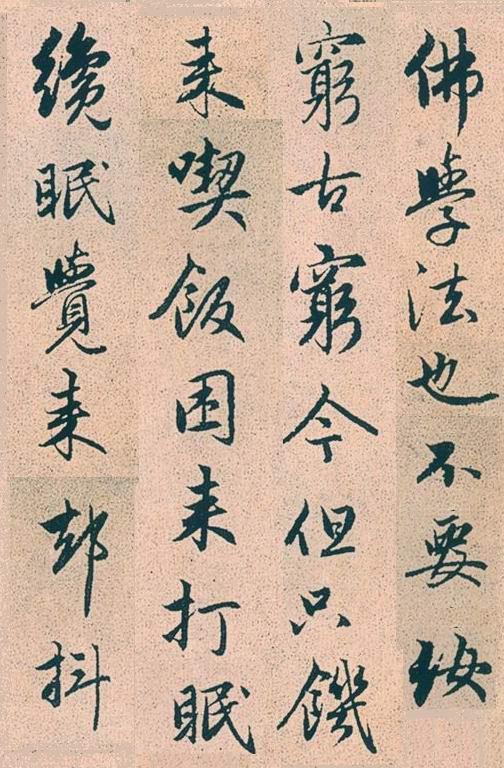 佛學法也不要汝
窮古窮今但只饑
来喫飯困来打眠
纔眠覺来却抖